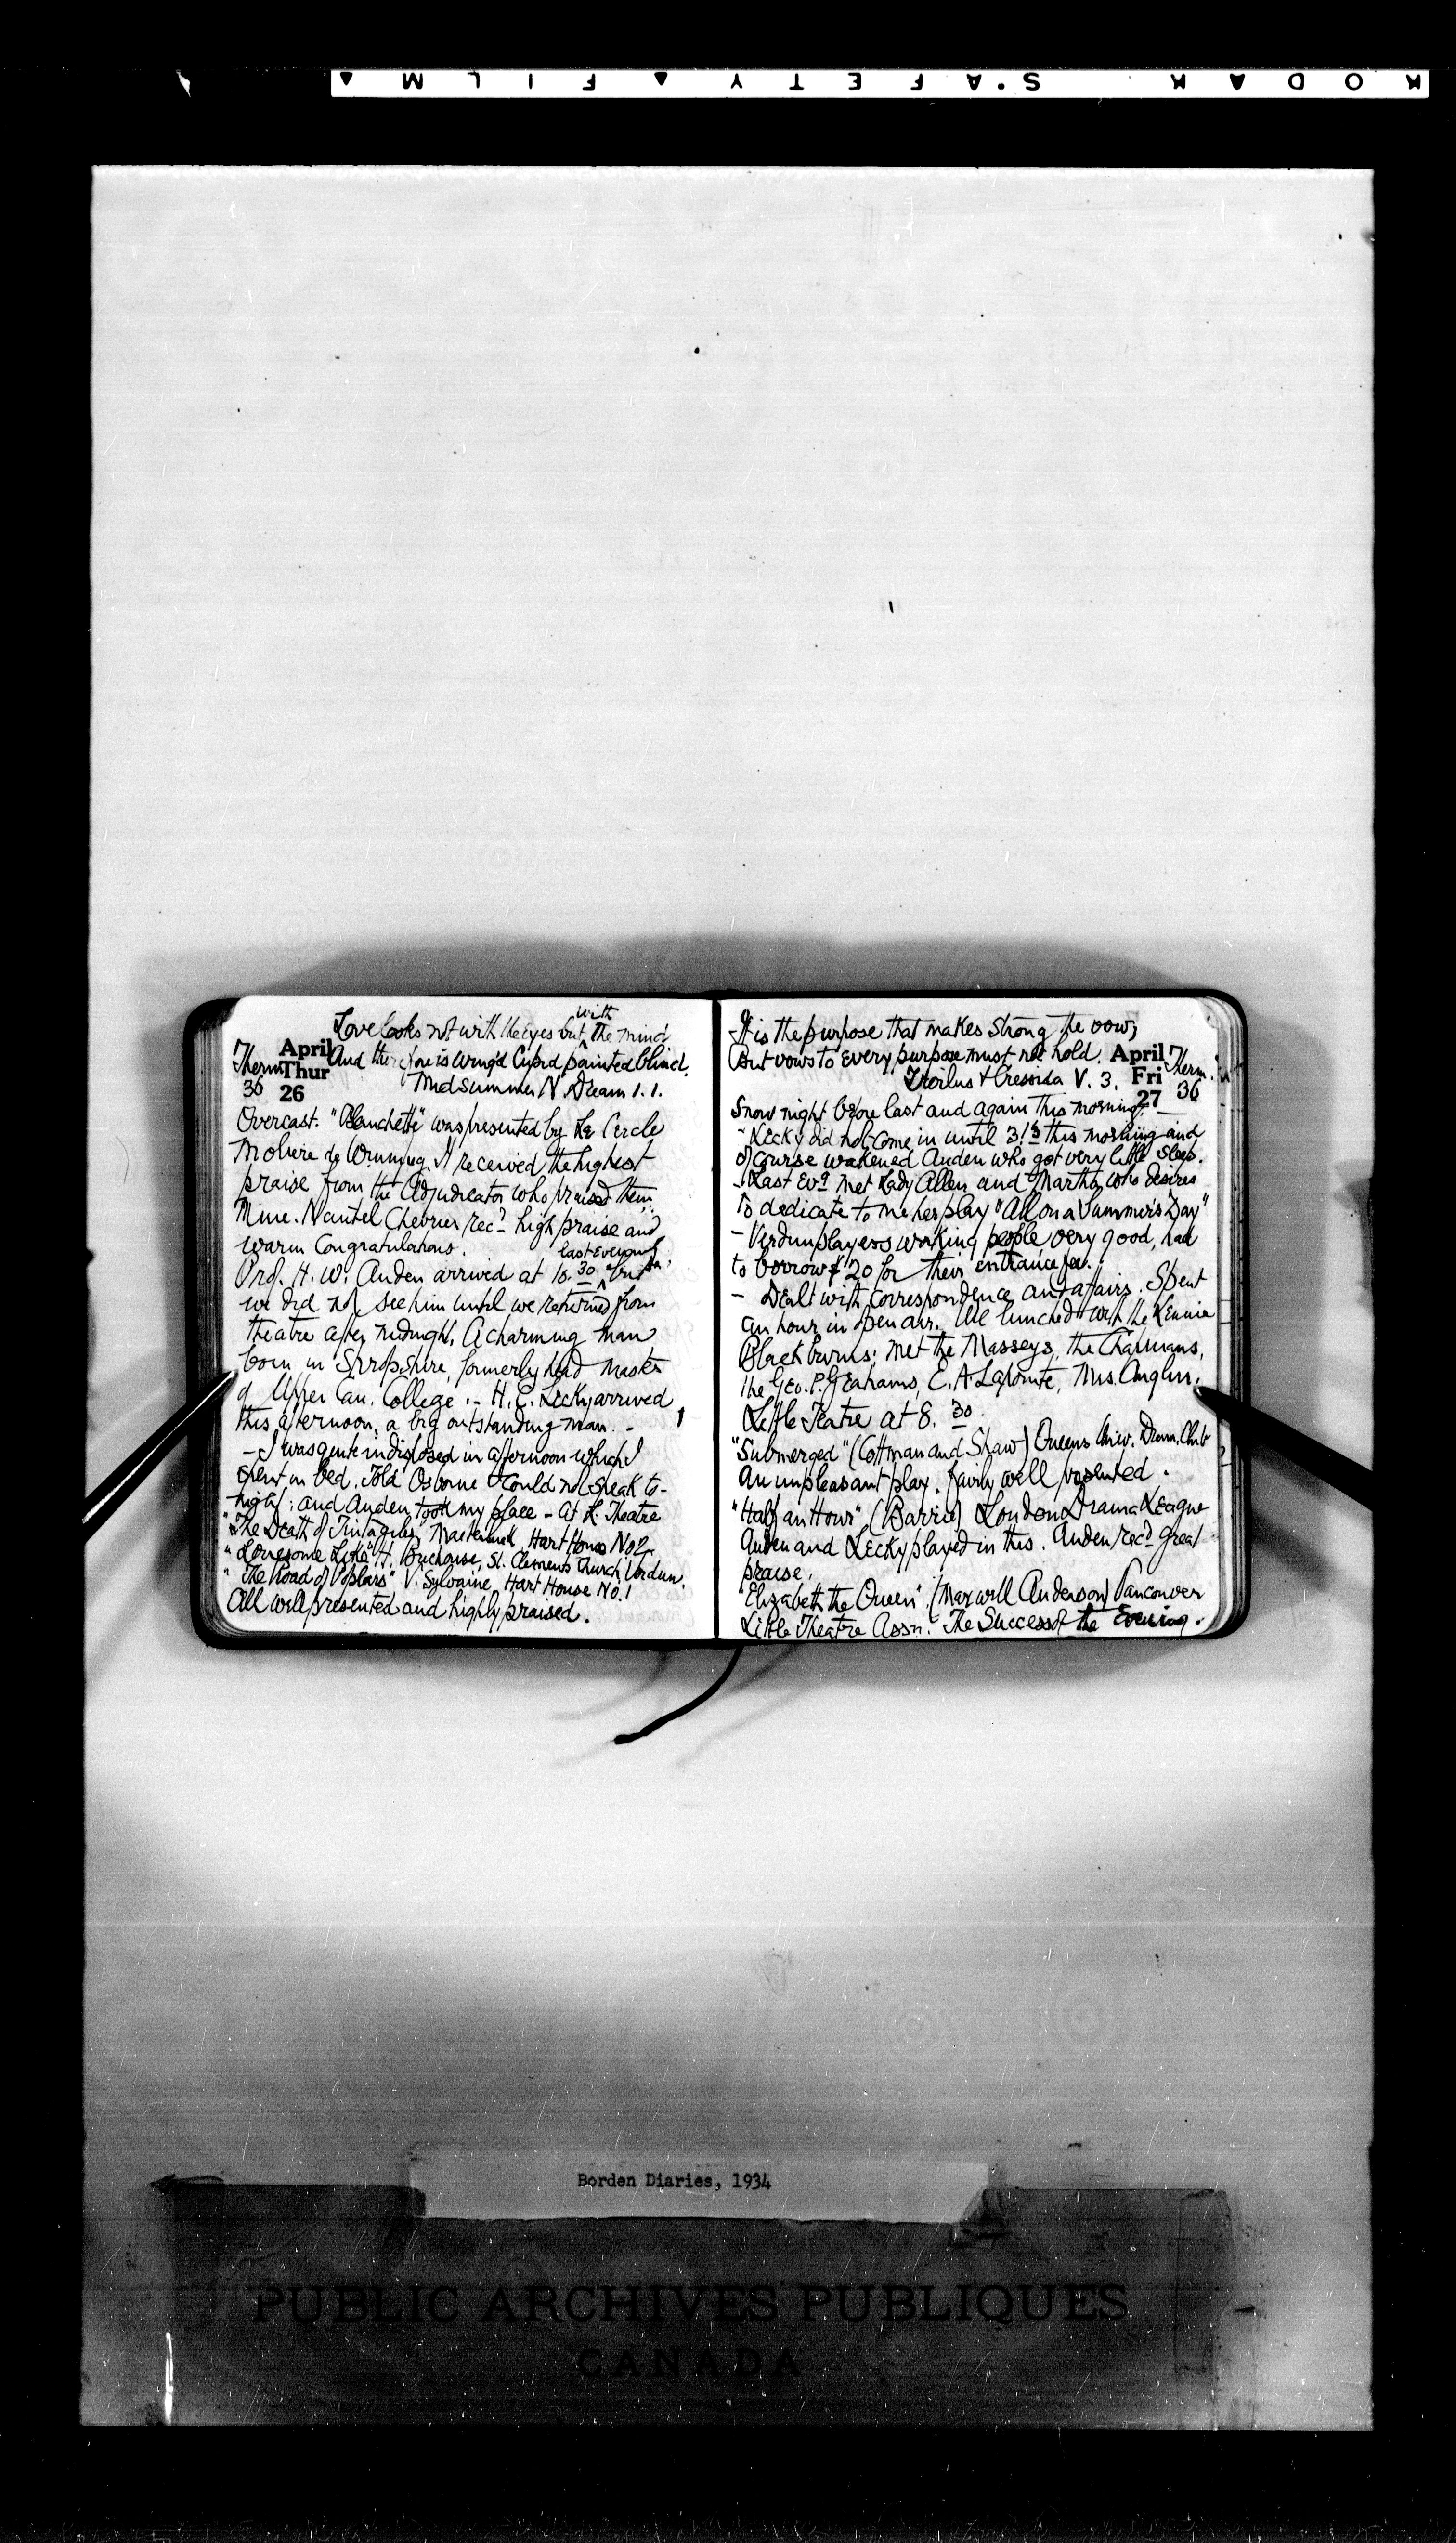 KODAK SAFETY FILM
Love looks not with the eyes but with the mind
And therefore is wing'd Cupid painted blind.
Midsummer N. Dream 1.1.
Therm
36
April
Thur
26
Overcast. "Blanchette" was presented by Le Cercle
Moliere de Winnipeg. It received the highest
praise from the Adjudicator who praised them.
Mme. Nantel Chevrier rec'd high praise and
warm Congratulations.
Prof. H. W. Auden arrived at 10.30 last evening but
we did not see him until we returned from
theatre after midnight. A charming man
born in Shropshire, formerly head master
of Upper Can. College. - H. E. Lecky arrived
this afternoon, a big outstanding man. -
- I was quite indisposed in afternoon which I
spent in bed. Told Osborne I could not speak to-
night: and Auden took my place - At L. Theatre
"The Death of Tintagiles" Maeterlinck, Hart House No 2
"Lonesome Like" H. Brighouse, St. Clements Church, Verdun.
"The Road of Poplars" V. Sylvaine, Hart House No. 1
All well presented and highly praised.
It is the purpose that makes strong the vow;
But vows to every purpose must not hold.
Troilus & Cressida V. 3.
April
Fri
27
Therm.
36
Snow night before last and again this morning.
- Lecky did not come in until 3.15 this morning and
of course wakened Auden who got very little sleep.
- Last Evg met Lady Allen and Martha who desires
to dedicate to me her play "All on a Summer's Day"
- Verdun players working people very good, had
to borrow $20 for their entrance fee.
- Dealt with correspondence and affairs. Spent
an hour in open air. We lunched with the Rennie
Blackburns; met the Masseys, the Chapmans,
the Geo. P. Grahams, E. A. Lapointe, Mrs. Anglin.
Little Teatre at 8.30
"Submerged" (Cottman and Shaw) Queens Univ. Dram. Club
An unpleasant play. fairly well presented.
"Half an Hour" (Barrie) London Drama League
Auden and Lecky played in this. Auden rec'd great
praise.
"Elizabeth the Queen" (Maxwell Anderson) Vancouver
Little Theatre Assn. The Success of the Evening.
Borden Diaries, 1934
PUBLIC ARCHIVES PUBLIQUES
CANADA